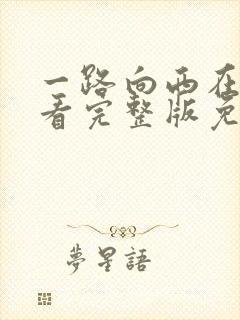 一路向西在
看完整版免
夢星語